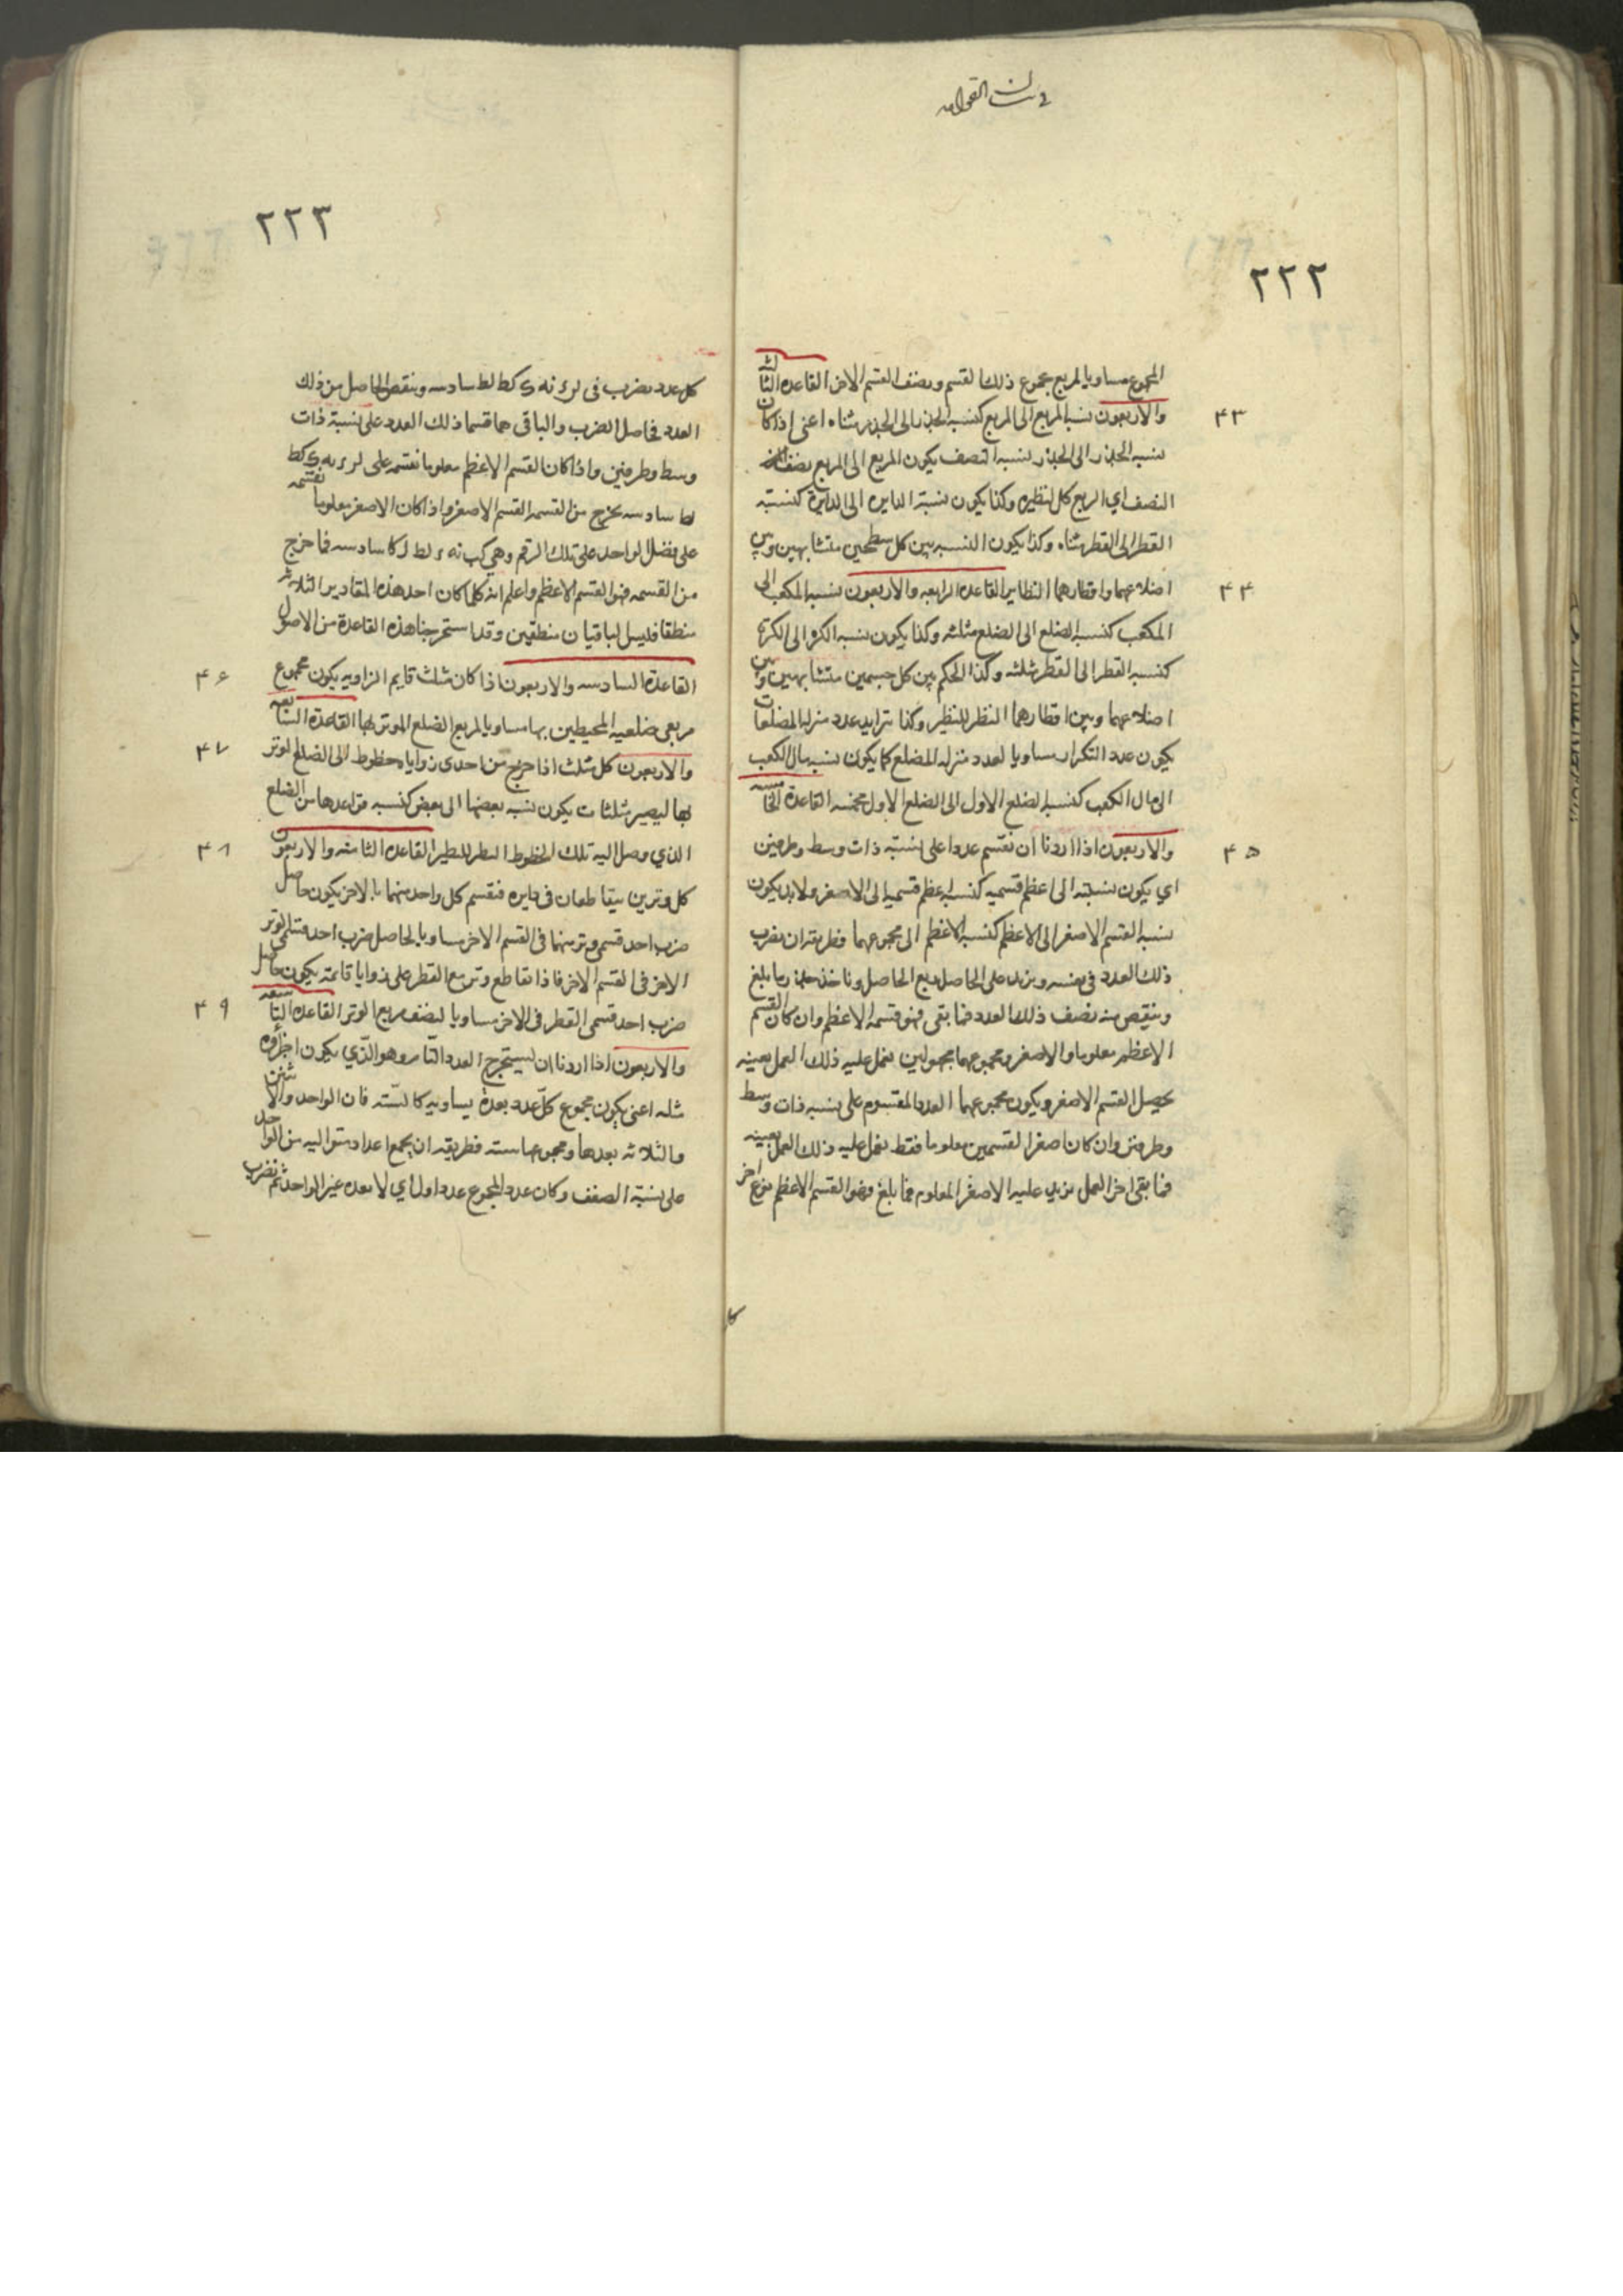 ٢٢٢
المجموع مساويا لمربع مجموع ذلك القسم ونصف القسم الاخر القاعده الثالثه
٤٣
والاربعون نسبة المربع الى المربع كنسبة الجذر الى الجذر مثناه اعنى اذا كان
نسبة الجذر الى الجذر نسبة النصف يكون المربع الى المربع نصف
النصف اي الربع كل لنظيره وكذا يكون نسبة الدايره الى الدايرة كنسبة
القطر الى القطر مثناه وكذا يكون النسبه بين كل سطحين متشابهين وبين
٤٤
اضلاعهما واقطارهما النظاير القاعده الرابعه والاربعون نسبة المكعب الى
المكعب كنسبة الضلع الى الضلع مثلثه وكذا يكون نسبه الكره الى الكرة
كنسبه القطر الى القطر مثلثه وكذا الحكم بين كل جسمين متشابهين وبين
اضلاعهما وبين اقطارهما النظير للنظير وكذا بتزايد عدد منزله المضلعات
يكون عدد التكرار مساويا لعدد منزله المضلع كما يكون نسبه مال الكعب
الى مال الكعب كنسبة الضلع الاول الى الضلع الاول مخمسه القاعدة الخامسه
٤٥
والاربعون اذا اردنا ان نقسم عددا على نسبته ذات وسط وطرفين
اي يكون نسبته الى اعظم قسميه كنسبة اعظم قسميه الى الاصغر ولابد يكون
نسبة القسم الاصغر الى الاعظم كنسبة الاعظم الى مجموعهما فطريقه ان نضرب
ذلك العدد فى نفسه ونزيد على الحاصل ربع الحاصل وناخذ جذر ما بلغ
وننقص منه نصف ذلك العدد فما بقى فهو قسمه الاعظم وان كان القسم
الاعظم معلوما والاصغر ومجموعهما مجهولين نعمل عليه ذلك العمل بعينه
يحصل القسم الاصغر ويكون مجموعهما العدد المقسوم على نسبه ذات وسط
وطرفين وان كان اصغر القسمين معلوما فقط نعمل عليه ذلك العمل بعينه
فما بقى اخر العمل نزيد عليه الاصغر المعلوم فما بلغ فهو القسم الاعظم نوع اخر
٢٢٣
كل عدد نضرب فى لر نه كط لط سادسه وننقص الحاصل من ذلك
العدد فحاصل الضرب والباقى هما قسما ذلك العدد على نسبة ذات
وسط وطرفين واذا كان القسم الاعظم معلوما نقسمه على لر كط
لط سادسه يخرج من القسمه القسم الاصغر واذا كان الاصغر معلوما نقسمه
على فضل الواحد على تلك الرقم وهي كب نه لط كا سادسه فما خرج
من القسمه فهو القسم الاعظم واعلم انه كلما كان احد هذه المقادير الثلاثه
منطقا فليس الباقيان منطقين وقد استخرجنا هذه القاعدة من الاصول
٤٦
القاعدة السادسه والاربعون اذا كان مثلث قايم الزاويه يكون مجموع
مربعى ضلعيه المحيطين بها مساويا لمربع الضلع الموتر بها القاعدة السابعه
٤٧
والاربعون كل مثلث اذا خرج من احدى زواياه خطوط الى الضلع الموتر
بها ليصير مثلثات يكون نسبه بعضها الى بعض كنسبه قواعدها من الضلع
٤٨
الذي وصل اليه تلك الخطوط النظير للنظير القاعده الثامنه والاربعون
كل وترين يتقاطعان فى دايره فنقسم كل واحد منهما بالاخر يكون حاصل
ضرب احد قسمى وتر منهما فى القسم الاخر مساويا لحاصل ضرب احد قسمى الوتر
الاخر فى القسم الاخر فاذا تقاطع وتر مع القطر على زوايا قائمة يكون حاصل
٤٩
ضرب احد قسمى القطر فى الاخر مساويا لنصف مربع الوتر القاعدة التاسعه
والاربعون اذا اردنا ان نستخرج العدد التام وهو الذي يكون اجزاوه
مثله اعنى يكون مجموع كل عدد بعده يساويه كالستّه فان الواحد والاثنين
والثلاثه بعدها ومجموعها سته فطريقه ان يجمع اعداد متواليه من الواحد
على نسبة الضعف وكان عدد المجموع عددا اول اي لا بعده غير الواحد ثم نضرب